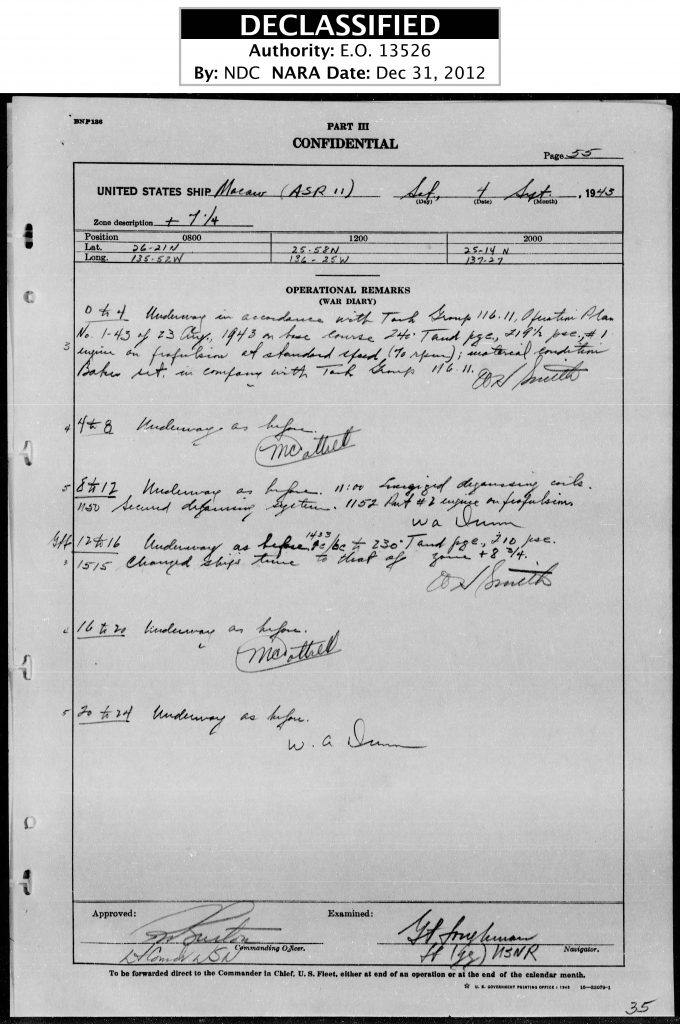 DECLASSIFIED
Authority: E.O. 13526
By: NDC NARA Date: Dec 31, 2012
BNP136
PART III
CONFIDENTIAL
Page 55
UNITED STATES SHIP Macaw (ASR 11) Sat, 4 Sept. , 1943
(Day) (Date) (Month)
Zone description + 7 1/4
Position 0800 1200 2000
Lat. 26-21N 25-58N 25-14 N
Long. 135-52W 136-25W 137-27
OPERATIONAL REMARKS
(WAR DIARY)
0 to 4 Underway in accordance with Task Group 116.11, Operation Plan
No. 1-43 of 23 Aug., 1943 on base course 240° T and pgc, 219½ psc, #1
3 engine on propulsion at standard speed (70 rpm); material condition
Baker set, in company with Task Group 116.11.
Smith
4 4 to 8 Underway as before.
5 8 to 12 Underway as before. 11:00 Energized degaussing coils.
1150 Secured degaussing system. 1152 Put #2 engine on propulsion
W a Dunn
12 to 16 Underway as before. 1433 to 230° T and pgc, 210 psc.
3 1515 Changed ships time to that of zone + 8 3/4.
Smith
16 to 20 Underway as before.
5 20 to 24 Underway as before.
W. a Dunn
Approved: Examined:
Commanding Officer. Lt (jg) USNR Navigator.
To be forwarded direct to the Commander in Chief, U.S. Fleet, either at end of an operation or at the end of the calendar month.
☆ U. S. GOVERNMENT PRINTING OFFICE : 1943
35